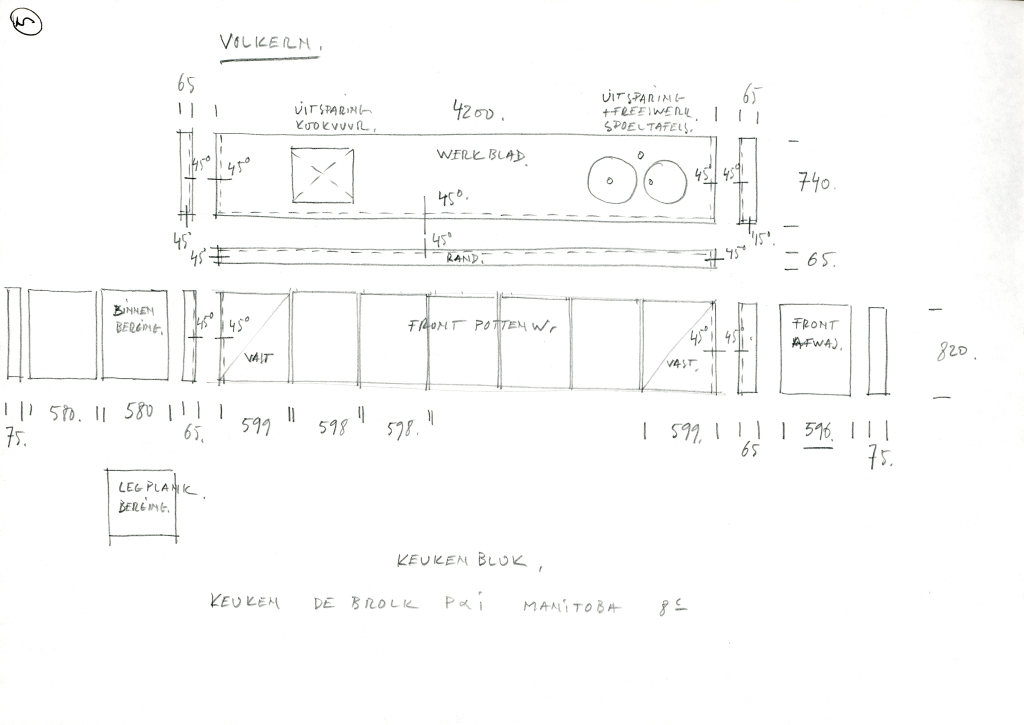 5
VOLKERN.
65
UITSPARING
KOOKVUUR.
4200.
UITSPARING
+FREESWERK
SPOELTAFELS.
65
WERKBLAD.
45° 45° 45° 45°
740.
45°.
45° 45° 45°
45° RAND. 45° 65.
BINNEN
BERGING.
45° 45°
FRONT POTTENW.
45° 45°
FRONT
AFWAS.
VAST
VAST.
820.
75. 580. 580 65. 599 598 598. 599. 65 596 75.
LEGPLANK.
BERGING.
KEUKENBLOK,
KEUKEN DE BROLK
MANITOBA